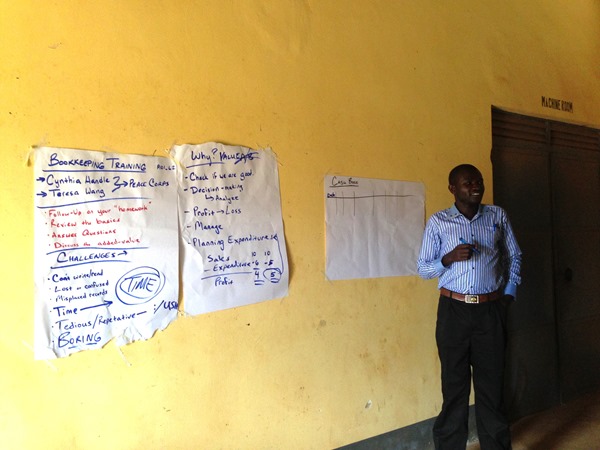 BOOKKEEPING TRAINING
→ Cynthia Handle
→ Teresa Wang
PEACE CORPS
• Follow-Up on your "homework"
• Review the basics
• Answer Questions
• Discuss the added-value
CHALLENGES →
• Can't write/read
• Lost or confused
• Misplaced records
• Time
TIME
• Tedious/Repetative
• BORING
Why? VALUE
- Check if we are good
- Decision-making
↳ Analyze
- Profit → Loss
- Manage
- Planning Expenditures
Sales 10 10
- Expenditure -6 -5
Profit 4 5
Cash Book
Date
MACHINE ROOM